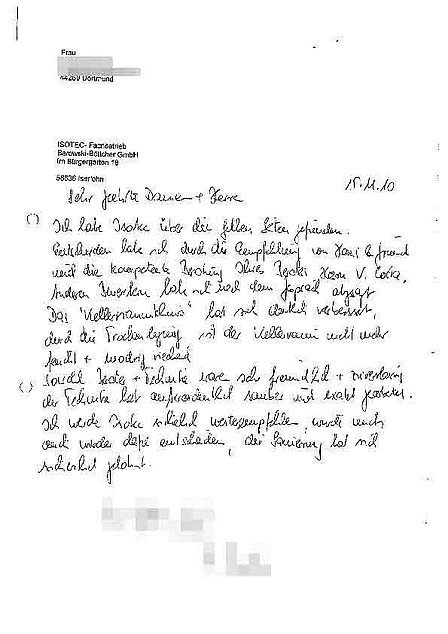 Frau
44269 Dortmund
ISOTEC- Fachbetrieb
Barowski-Böttcher GmbH
Im Bürgergarten 19
58636 Iserlohn
15.11.10
Sehr geehrte Damen + Herren
Ich habe Isotec über die gelben Seiten gefunden.
Entschieden habe ich durch die Empfehlung von Haus & Grund
und die kompetente Beratung Ihres Herrn V.
Anderen habe ich nach dem Gespräch abgesagt
Das "Kellerraumklima" hat sich deutlich verbessert,
durch die Trockenlegung ist der Kellerraum nicht mehr
feucht + modrig riechend
Sowohl + Techniker waren sehr freundlich + zuverlässig
der Techniker hat außerordentlich sauber und exakt gearbeitet.
Ich werde Isotec sicherlich weiterempfehlen, würde mich
auch wieder dafür entscheiden, die Sanierung hat sich
sicherlich gelohnt.